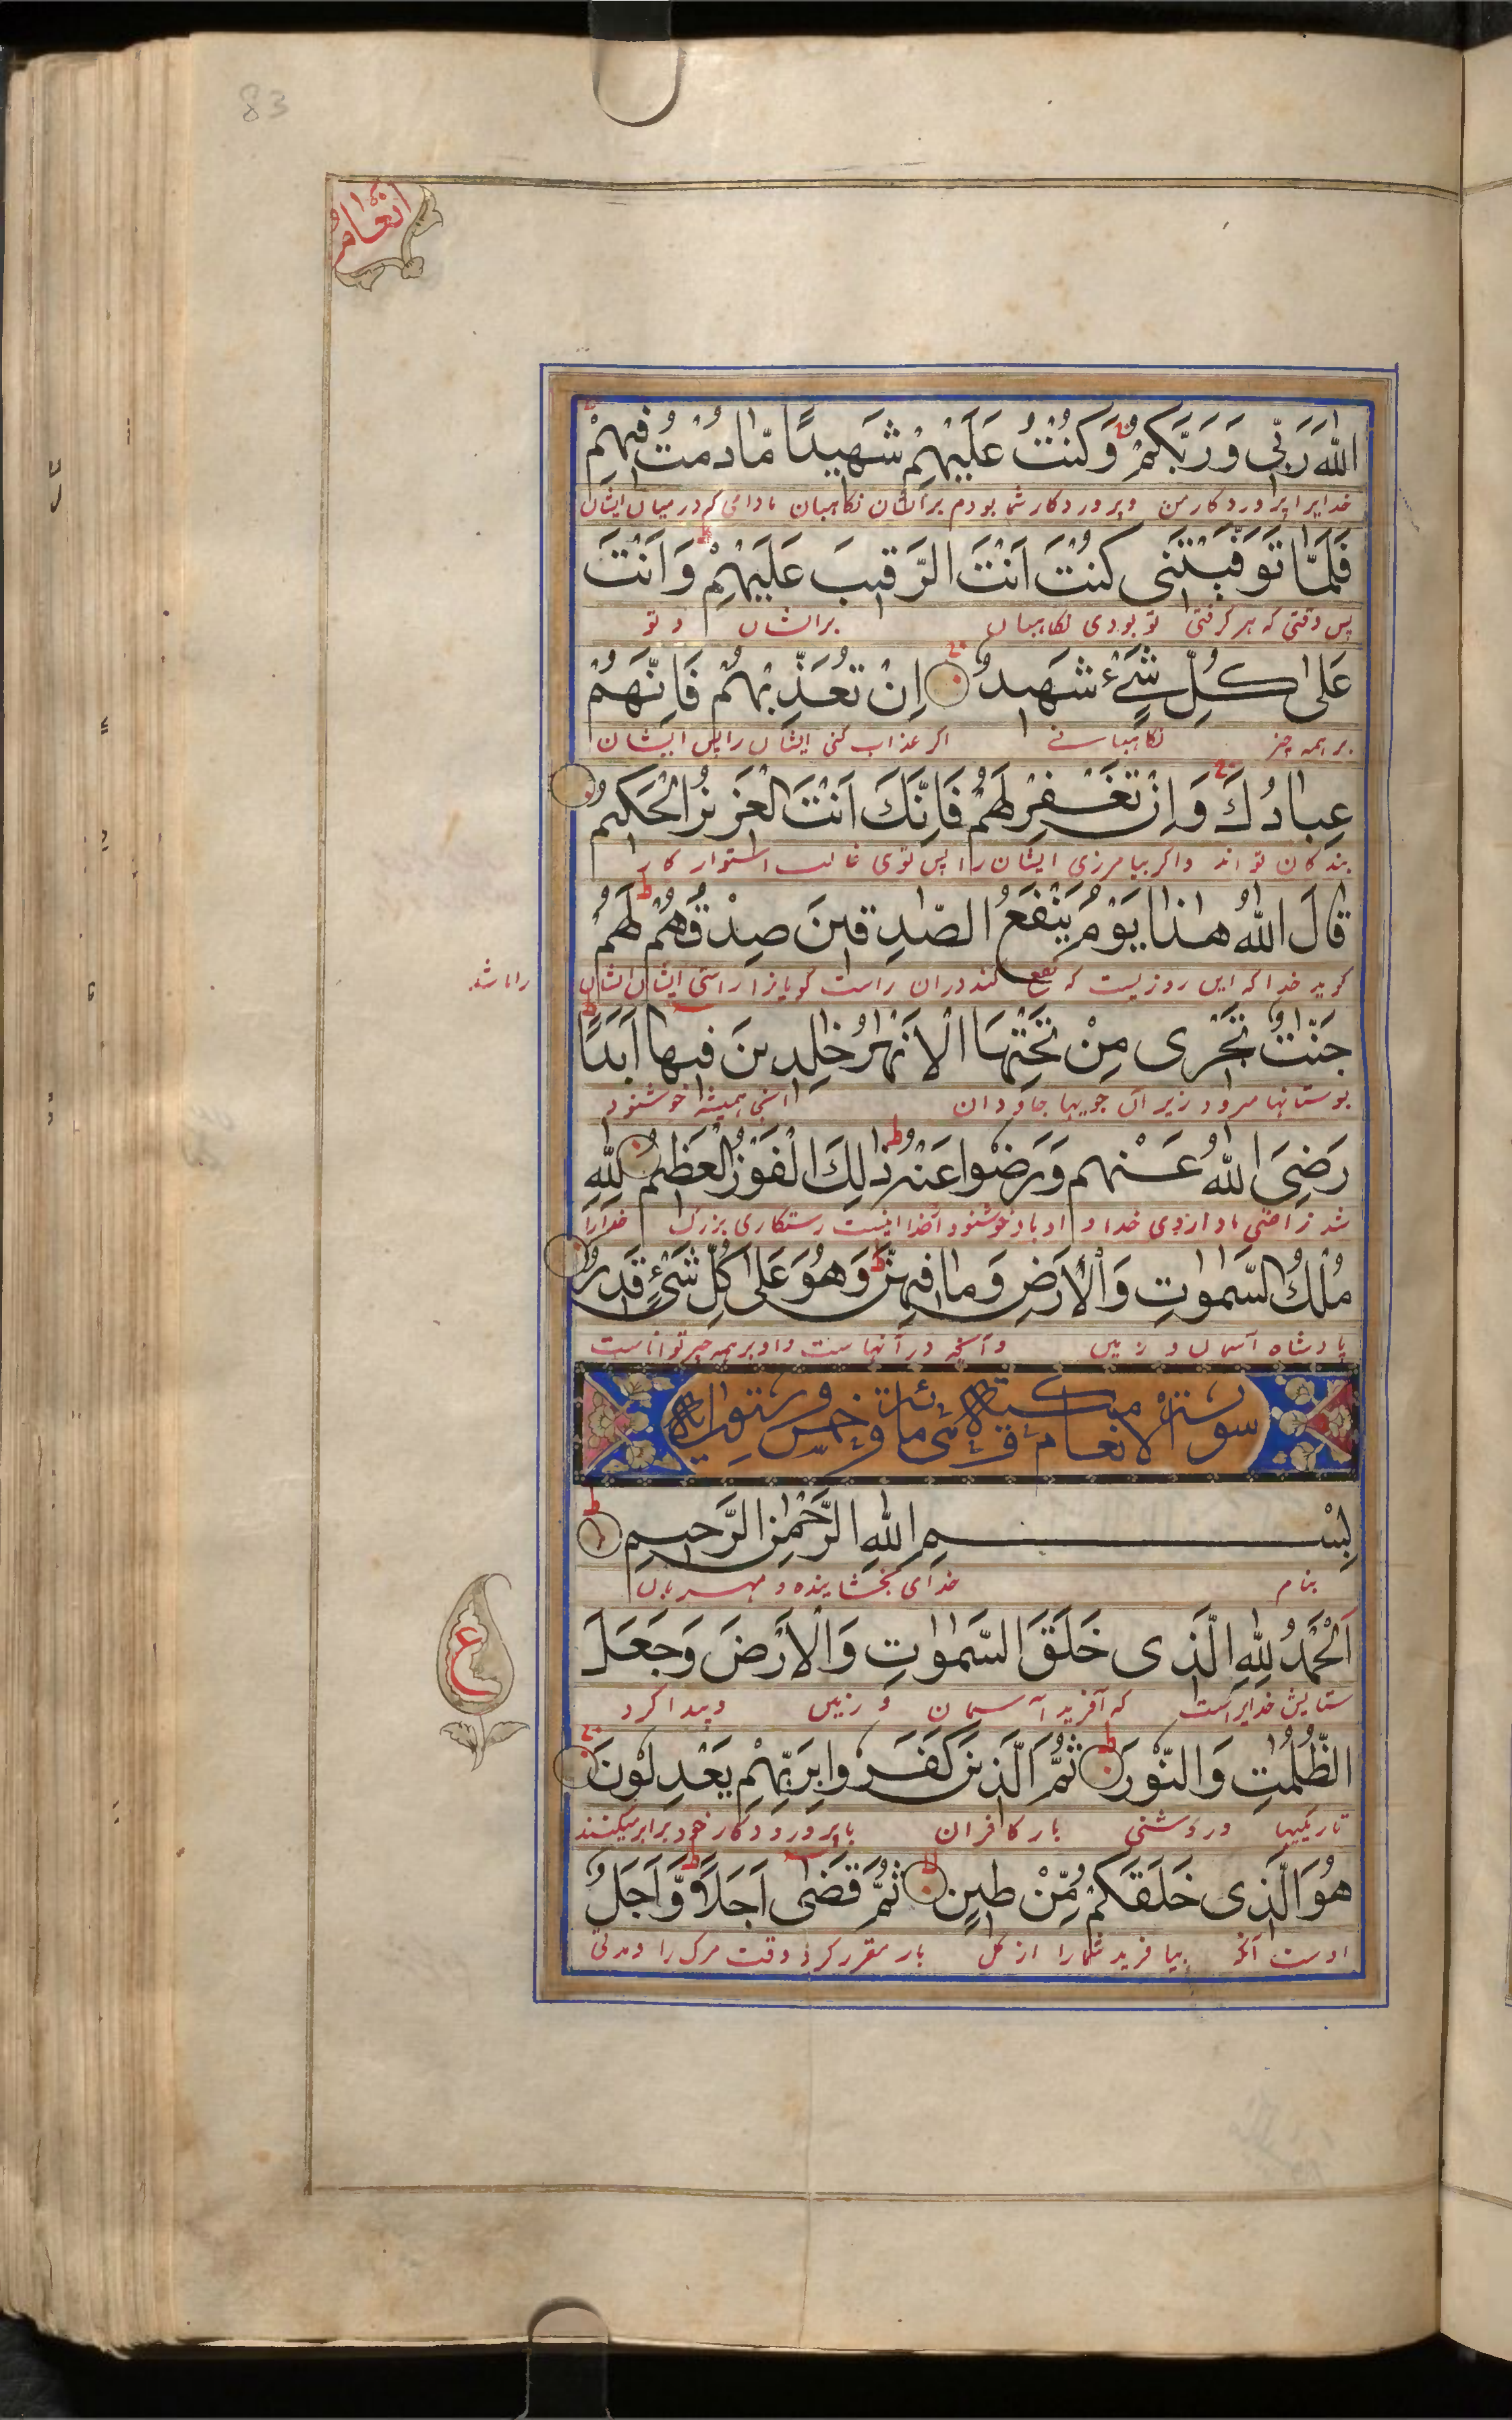 83
انعام
اللّٰهَ رَبِّی وَ رَبَّکُمْ وَکُنْتُ عَلَیْهِمْ شَهِیدًا مَّا دُمْتُ فِیهِمْ
خدایرا پروردکار من و پروردکار شما بودم بر ایشان نکاهبان مادامی که در میان ایشان
فَلَمَّا تَوَفَّیْتَنِی کُنْتَ اَنْتَ الرَّقِیبَ عَلَیْهِمْ وَ اَنْتَ
پس وقتی که بر کرفتی تو بودی نکاهبان برایشان و تو
عَلٰی کُلِّ شَیْءٍ شَهِیدٌ اِنْ تُعَذِّبْهُمْ فَاِنَّهُمْ
بر همه چیز نکاهبانی اکر عذاب کنی ایشان را پس ایشان
عِبَادُكَ وَ اِنْ تَغْفِرْ لَهُمْ فَاِنَّكَ اَنْتَ الْعَزِیزُ الْحَکِیمُ
بندکان تو اند واکر بیامرزی ایشان را پس توی غالب استوار کار
قَالَ اللّٰهُ هٰذَا یَوْمُ یَنْفَعُ الصّٰدِقِینَ صِدْقُهُمْ لَهُمْ
کوید خدا که این روزیست که نفع کند دران راست کویانرا راستی ایشان ایشان را باشد
جَنّٰتٌ تَجْرِی مِنْ تَحْتِهَا الْاَنْهٰرُ خٰلِدِینَ فِیهَا اَبَدًا
بوستانها میرود زیر آن جویها جاودان همیشه خوشنود
رَضِیَ اللّٰهُ عَنْهُمْ وَرَضُوا عَنْهُ ذٰلِكَ الْفَوْزُ الْعَظِیمُ لِلّٰهِ
خوشنود اینست رستکاری بزرك خدارا
مُلْكُ السَّمٰوٰتِ وَالْاَرْضِ وَمَا فِیهِنَّ وَهُوَ عَلٰی کُلِّ شَیْءٍ قَدِیرٌ
پادشاه آسمان و زمین وآنچه در آنهاست واو بر همه چیز تواناست
سورة الانعام مکیة و هی مائة و خمس و ستون ایة
بِسْمِ اللّٰهِ الرَّحْمٰنِ الرَّحِیمِ
بنام خدای بخشاینده و مهربان
اَلْحَمْدُ لِلّٰهِ الَّذِی خَلَقَ السَّمٰوٰتِ وَالْاَرْضَ وَجَعَلَ
ع
ستایش خدایراست که آفرید آسمان و زمین وپیدا کرد
الظُّلُمٰتِ وَالنُّوْرَ ثُمَّ الَّذِینَ کَفَرُوا بِرَبِّهِمْ یَعْدِلُوْنَ
تاریکیها وروشنی باز کافران با پروردکار خود برابر میکنند
هُوَ الَّذِی خَلَقَکُمْ مِّنْ طِینٍ ثُمَّ قَضٰی اَجَلًا وَّ اَجَلٌ
اوست آنکه بیافرید شمارا از کل باز مقرر کرد وقت مرك را ومدتی